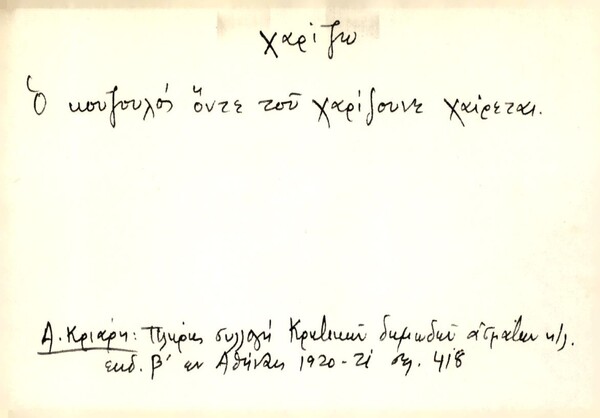 χαρίζω
Ὁ κουζουλός ὄντε τοῦ χαρίζουνε χαίρεται.
Α. Κριάρη: Πλήρης συλλογή Κρητικῶν δημωδῶν ᾀσμάτων κ/λ.
ἐκδ. β' εν Αθήναις 1920 - σελ. 418